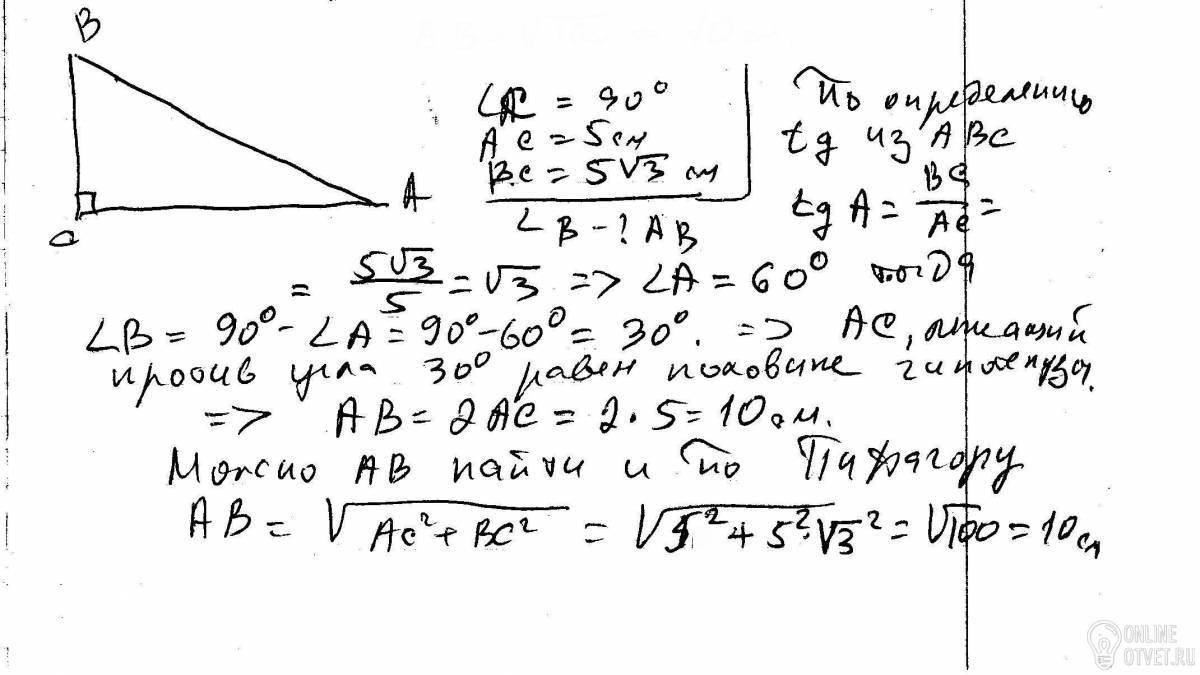 B
A
C
∠C = 90°
AC = 5 см
BC = 5√3 см
∠B - ? AB
По определению
tg из ABC
tg A = BC/AC =
= 5√3/5 = √3 => ∠A = 60° тогда
∠B = 90° - ∠A = 90° - 60° = 30°. => AC, лежащий
против угла 30° равен половине гипотенузы.
=> AB = 2AC = 2·5 = 10 см.
Можно AB найти и по Пифагору
AB = √AC² + BC² = √5² + 5²·√3² = √100 = 10 см
ONLINE
OTVET.RU